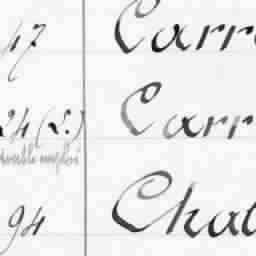 47 Carr
24 (2.) Carr
double emploi
94 Chat